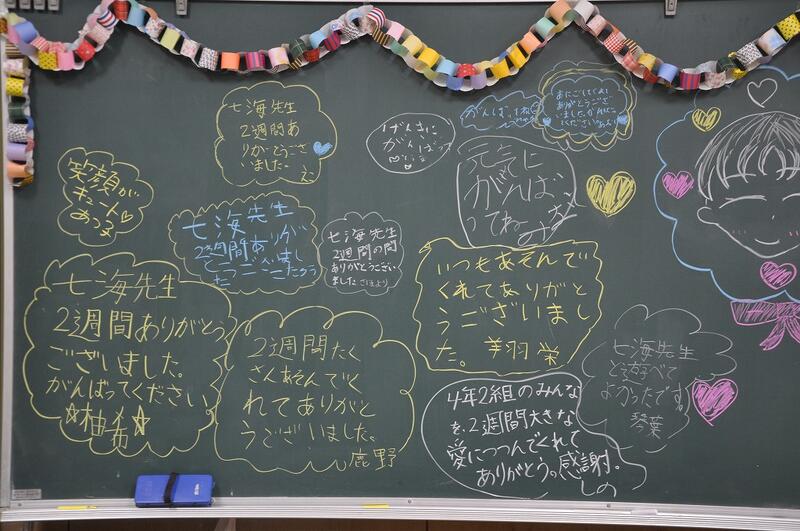 七海先生
2週間あ
りがとうござ
いました。
笑顔が
キュート
七海先生
2週間ありが
とうございまし
た
七海先生
2週間の間
ありがとうござい
ました
七海先生
2週間ありがとう
ございました。
がんばってください
☆柚希☆
2週間たく
さんあそんでく
れてありがと
うございました。
鹿野
げんきに
がんばって
がんばってね
ありがとうござ
いました
元気に
がんば
ってね
いつもあそんで
くれてありがと
うございまし
た。
4年2組のみんな
を、2週間大きな
愛につつんでくれて
ありがとう。感謝。
しの
七海先生
と遊べて
よかったです。
琴葉